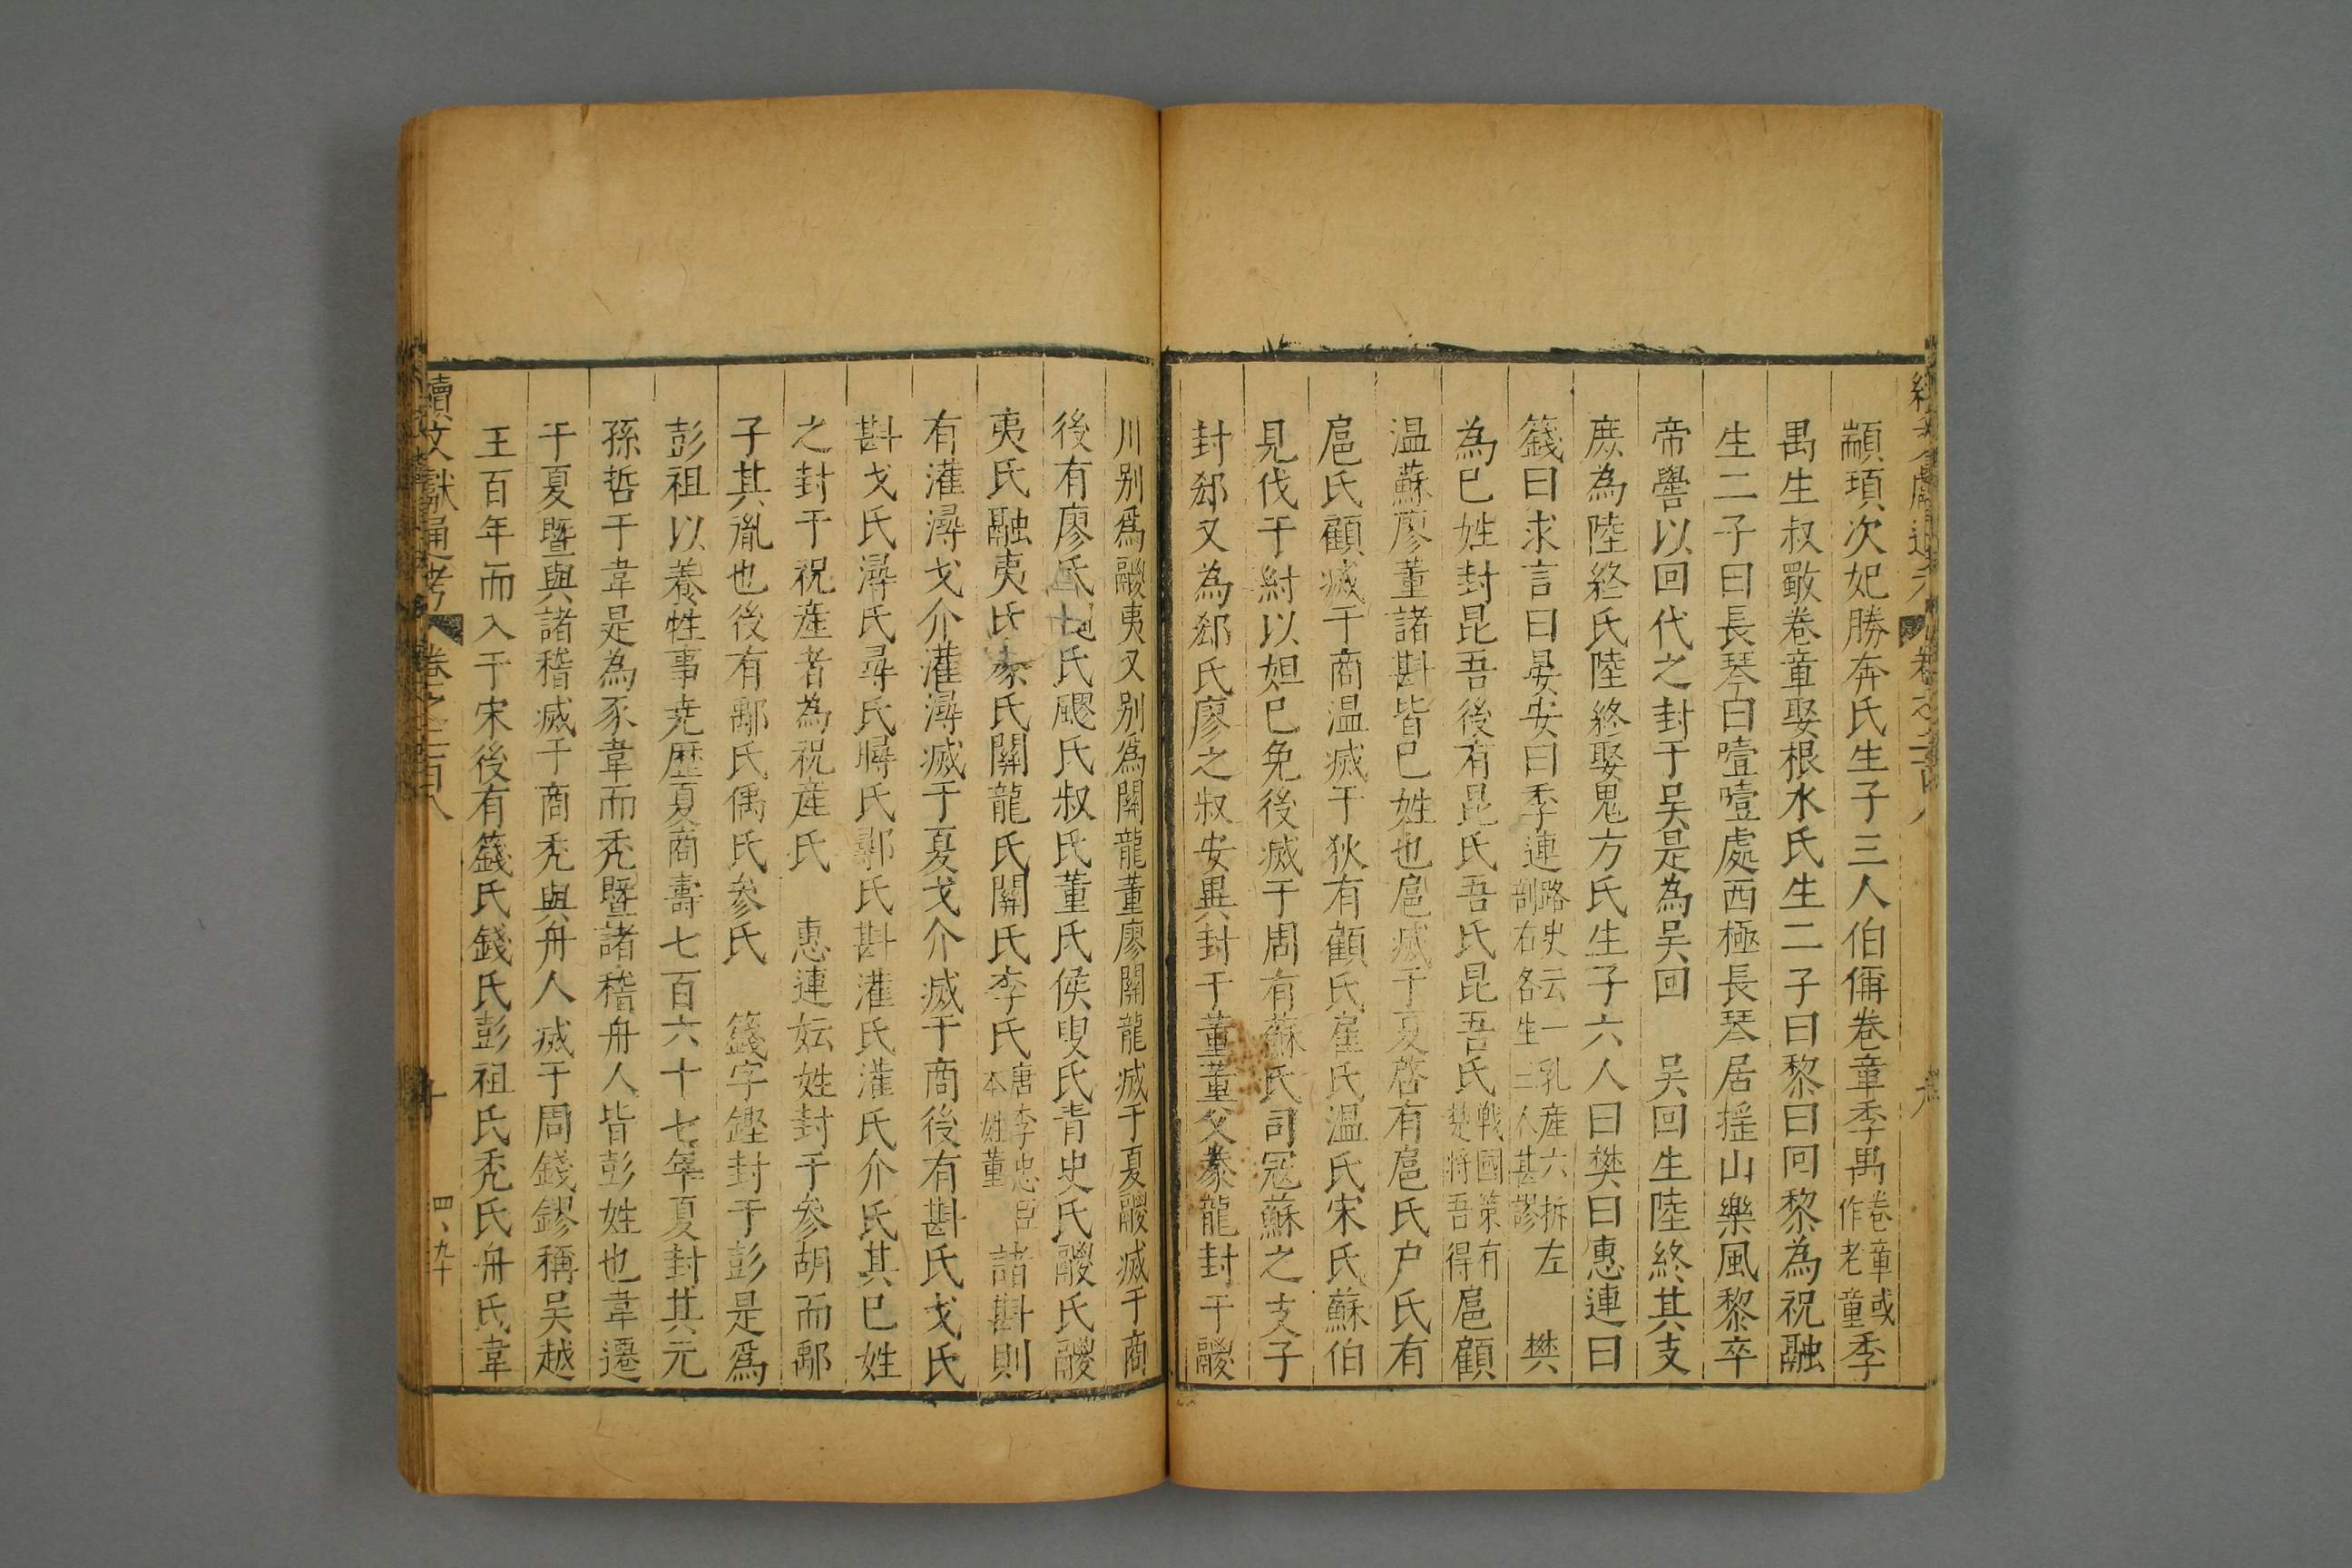 顓頊次妃勝奔氏生子三人伯偁卷章季禺卷章或作老童季
禺生叔歜卷章娶根水氏生二子曰黎曰回黎為祝融
生二子曰長琴曰噎噎處西極長琴居搖山樂風黎卒
帝嚳以回代之封于吳是為吳回 吳回生陸終其支
庶為陸終氏陸終娶鬼方氏生子六人曰樊曰惠連曰
籛曰求言曰晏安曰季連路史云一乳産六拆左剖右各生三人甚謬 樊
為巳姓封昆吾後有昆氏吾氏昆吾氏戰國策有楚將吾得扈顧
温蘇廖董諸斟皆巳姓也扈滅于夏啓有扈氏户氏有
扈氏顧滅于商温滅于狄有顧氏雇氏温氏宋氏蘇伯
見伐于紂以妲巳免後滅于周有蘇氏司冦蘇之支子
封郄又為郄氏廖之叔安異封于董董父豢龍封于鬷
川别爲鬷夷又别爲關龍董廖關龍滅于夏鬷滅于商
後有廖氏 氏飂氏叔氏董氏侯叟氏青史氏鬷氏鬷
夷氏融夷氏 氏關龍氏關氏李氏唐李忠臣本姓董 諸斟則
有灌潯戈介灌潯滅于夏戈介滅于商後有斟氏戈氏
斟戈氏潯氏尋氏𨞬氏鄩氏斟灌氏灌氏介氏其巳姓
之封于祝産者為祝産氏 惠連妘姓封于參胡而鄅
子其胤也後有鄅氏偊氏參氏 籛字鏗封于彭是爲
彭祖以養性事堯歴夏商壽七百六十七年夏封其元
孫哲于韋是為豕韋而禿暨諸稽舟人皆彭姓也韋遷
于夏暨與諸稽滅于商禿與舟人滅于周錢鏐稱吳越
王百年而入于宋後有籛氏錢氏彭祖氏禿氏舟氏韋
續文獻通考 卷之二百八 十 四、九十